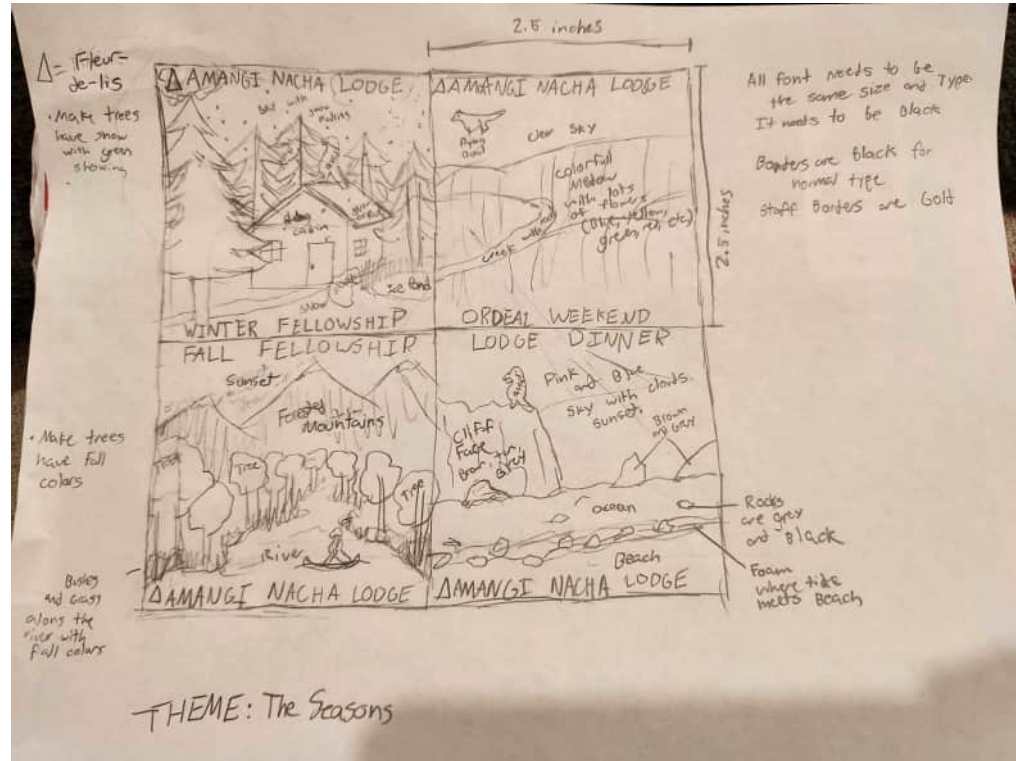 2.5 inches
2.5 inches
Δ= Fleur-
de-lis
• Make trees
have snow
with green
showing
Δ AMANGI NACHA LODGE
Sky with snow
cabin
Ice Pond
snow
WINTER FELLOWSHIP
ΔAMANGI NACHA LODGE
Clear Sky
Flying
colorfull
Medow
with lots
of flowers
(Blue, yellow,
green, red, etc)
creek with
ORDEAL WEEKEND
All font needs to be
the same size and Type
It needs to be Black
Borders are Black for
normal type
Staff Borders are Gold
FALL FELLOWSHIP
Sunset
Forested
Mountains
Tree
Tree
Tree
River
ΔAMANGI NACHA LODGE
• Make trees
have Fall
colors
Bushes
and Grass
along the
river with
Fall colors
LODGE DINNER
Pink
and Blue
Sky with clouds.
Sunset.
Cliff
Face
Brown
and Grey
ocean
Beach
ΔAMANGI NACHA LODGE
Rocks
are grey
and Black
Foam
where tide
meets Beach
THEME: The Seasons